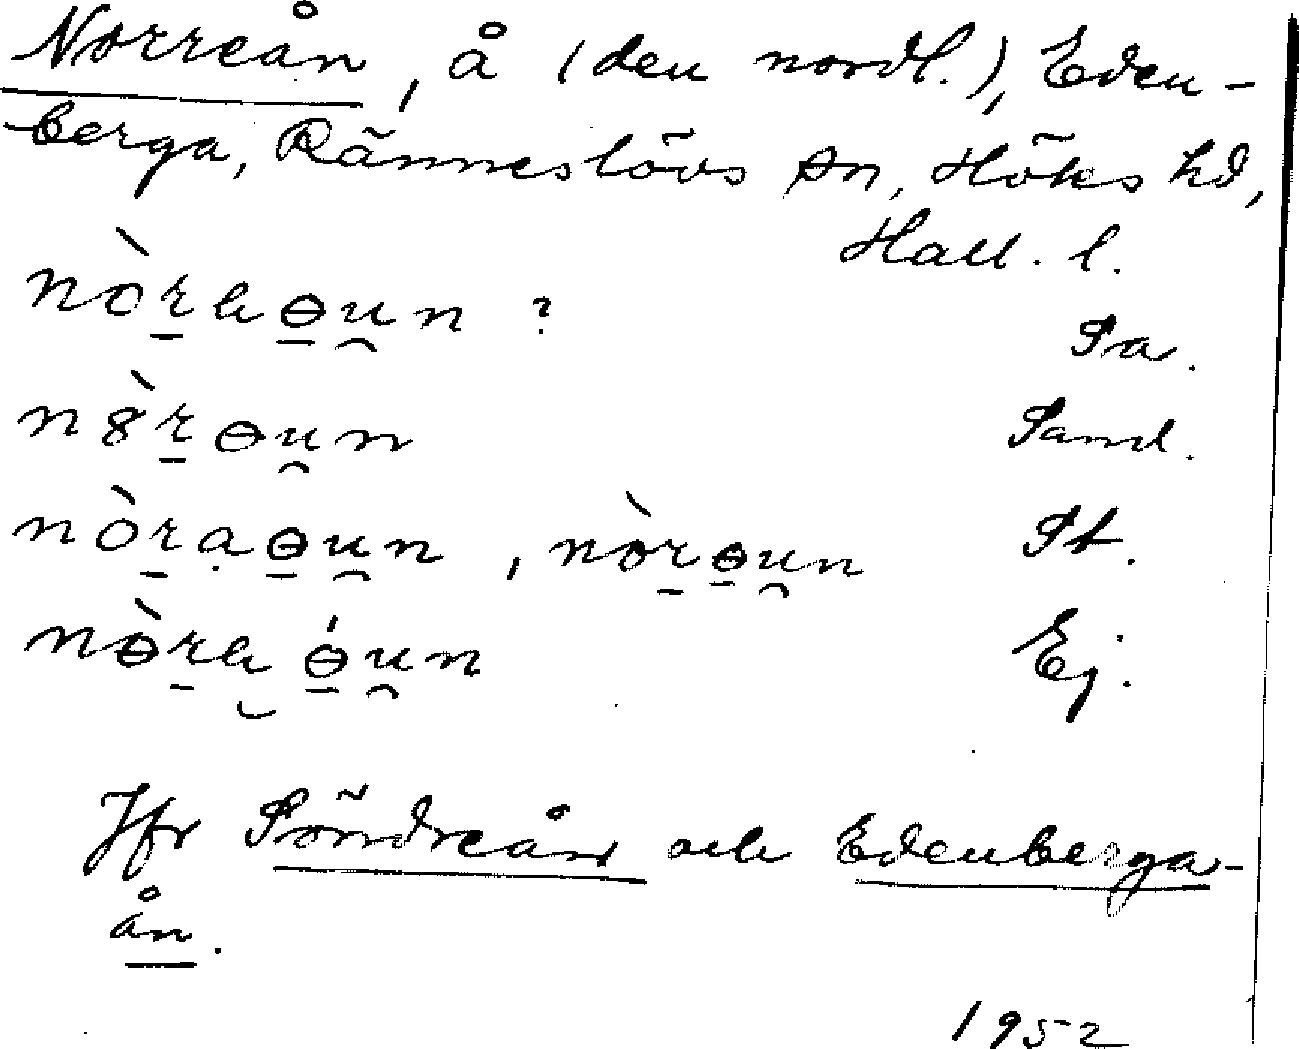 Norreån, å (den nordl.), Eden-
berga, Ränneslövs sn, Höks hd,
Hall. l.
nòṟaɵ̱u̯n ?
Sa.
n8̀ṟɵu̯n
Sand.
nòṟạɵ̱u̯n, nòṟɵ̱u̯n
St.
nɵ̀ṟa̮ɵ̱́u̯n
Ej.
Jfr Söndreån och Edenberga-
ån.
1952